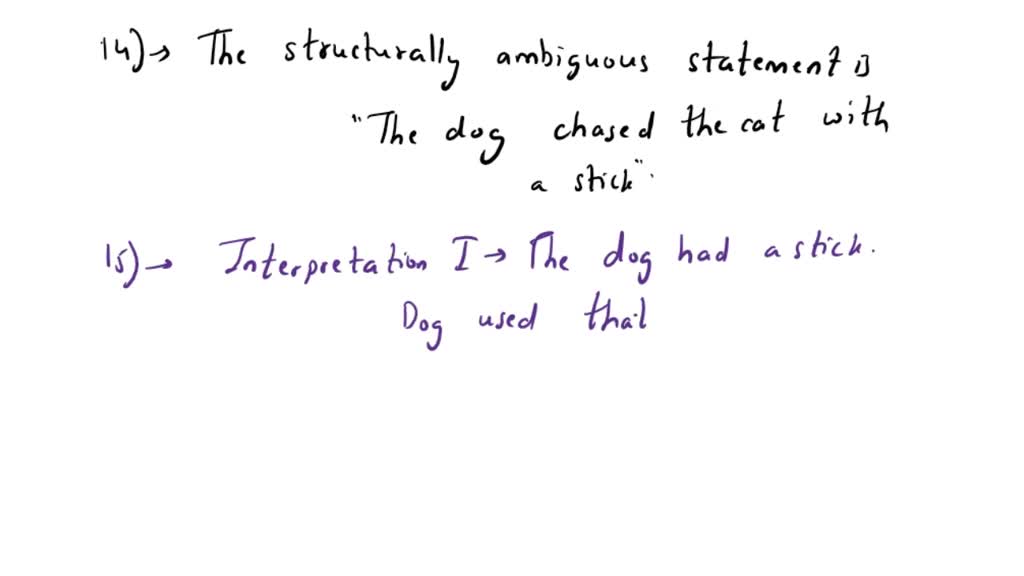 14)→ The structurally ambiguous statement is
"The dog chased the cat with
a stick".
15)→ Interpretation I → The dog had a stick.
Dog used that